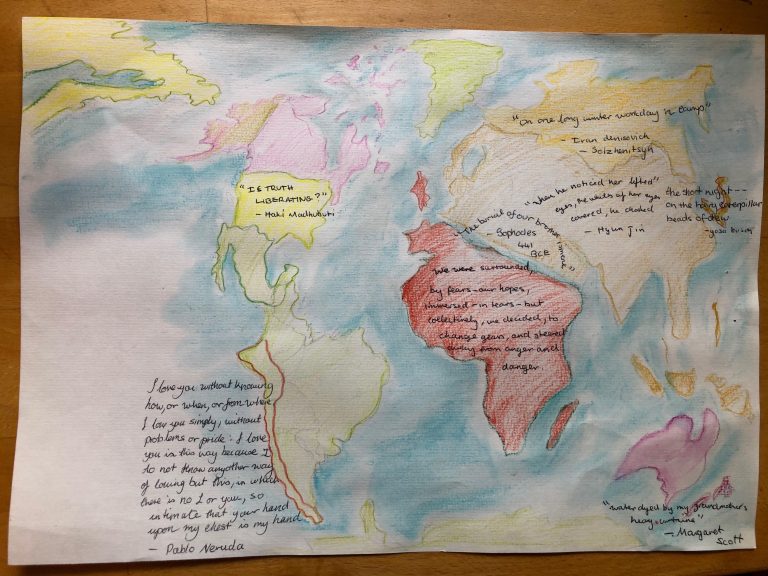 "On one long winter workday in Camp"
- Ivan denisovich
- Solzhenitsyn
"IS TRUTH
LIBERATING?"
- Haki Madhubuti
"when he noticed her lifted"
eyes, the whites of her eyes
covered, he choked
- Hyun Jin
the short night--
on the hairy caterpillar
beads of dew
- yosa buson
"The burial of our brother
- Sophocles
441
BCE
We were surrounded,
by fears-our hopes,
immersed-in tears-but
collectively, we decided, to
change gears, and steered
away from anger and
danger.
I love you without knowing
how, or when, or from where
I lov you simply, without
problems or pride: I love
you in this way because I
do not know anyother way
of loving but this, in which
there is no I or you, so
intimate that your hand
upon my chest is my hand
- Pablo Neruda
"water dyed by my grandmother's
heavy
- Margaret
Scott